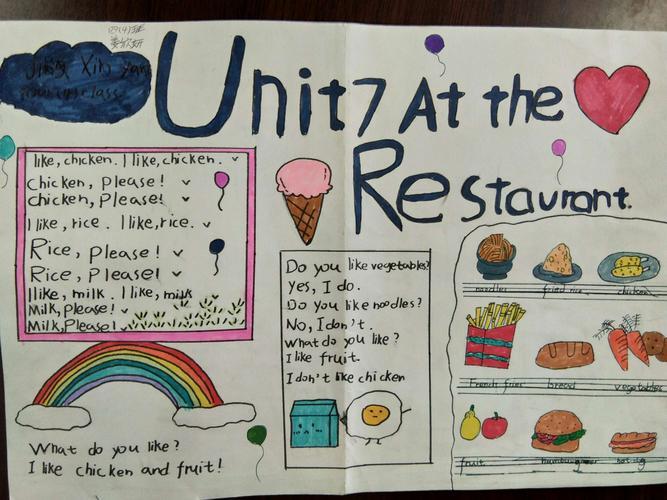 Unit7 At the
Restaurant.
I like, chicken. I like, chicken.
Chicken, Please!
chicken, Please!
I like, rice. I like, rice.
Rice, please!
Rice, Please!
I like, milk. I like, milk
Milk, please!
Milk, Please!
Do you like vegetables?
Yes, I do.
Do you like noodles?
No, I don't.
What do you like?
I like fruit.
I don't like chicken
What do you like?
I like chicken and fruit!
noodles fried rice chicken
French fries bread vegetables
fruit